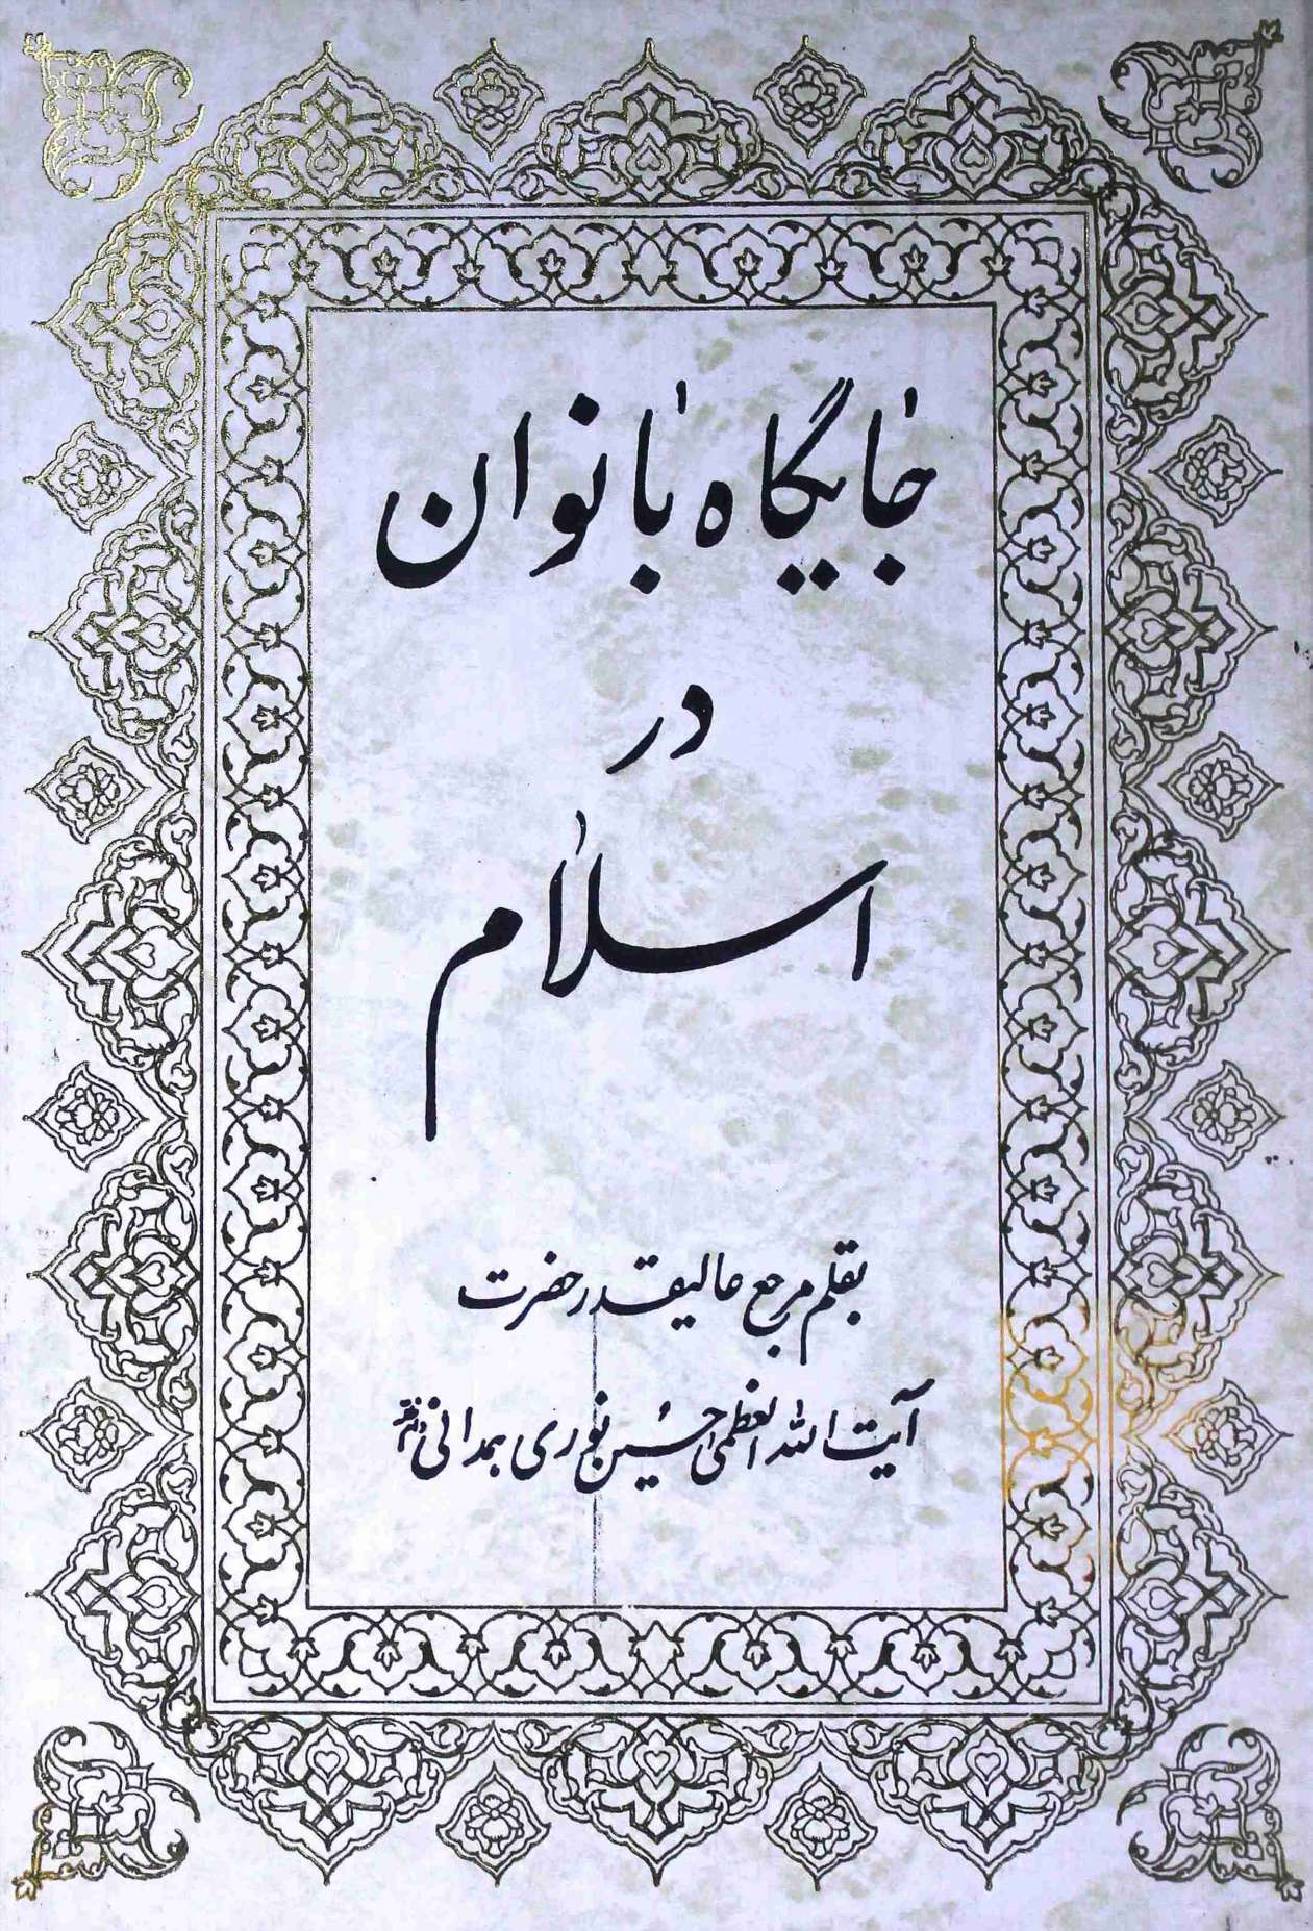 جایگاه بانوان
در
اسلام
بقلم مرجع عالیقدر حضرت
آیت الله العظمی حسین نوری همدانی